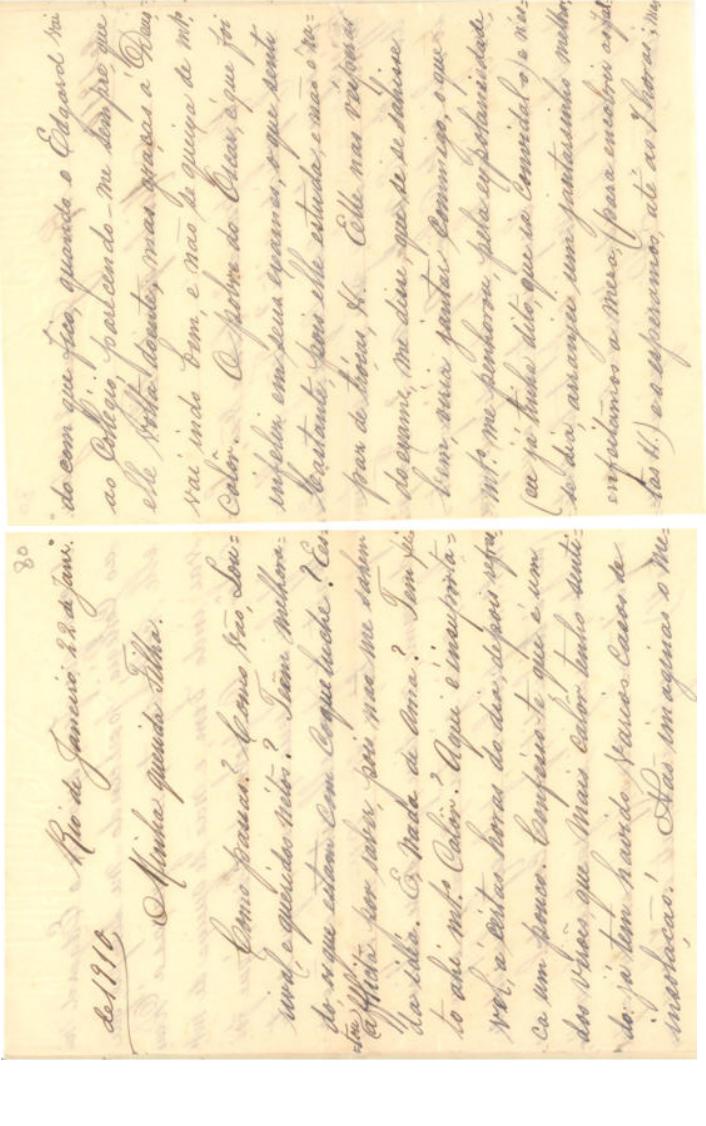 80
Rio de Janeiro, 22 de Janr.º
de 1910
Minha querida Filha.
Como passas? Como vão, Lou=
rival, e queridos netos? Teem melhora=
do os que estam com coqueluche? Es=
tou afflicta por saber, pois não me sahem
da idéa. E, nada de ama? Tem fei=
to ahi mt.º Calôr? Aqui é insuporta=
vel, a certas horas do dia, depois refres=
ca um pouco. Confesso-te que é um
dos verões que mais calor tenho senti=
do; já tem havido varios casos de
insolação! Não imaginas o me=
do com que fico, quando o Edgard vai
ao Colegio, parecendo-me sempre, que
elle volta doente, mas graças á Deus,
vai indo bem, e não se queixa de mt.º
Calôr. O pobre do Oscar, é que foi
infeliz em seus exames, o que senti
bastante, pois elle estuda, e não é ra=
paz de tróças, &. Elle nas vesperas
do exame, me disse, que se se sahisse
bem, viria jantar commigo, o que
mt.º me penhorou, pela expontaneidade,
(eu já tinha dito, que ia Convidal-o) e nes=
se dia arranjei um jantarsinho melhor,
enfeitámos a mesa, (para encobrir as fal
tas &.) e o esperamos, até as 7 horas;